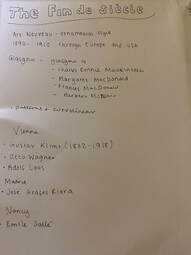 The Fin de Siècle
Art Nouveau - ornamental style
1890 - 1910 through Europe and USA
Glasgow - glasgow 4
• Charles Rennie Mackintosh
• Margaret MacDonald
• Frances MacDonald
• Herbert McNair
patterns + curvilinear
Vienna
• Gustav Klimt (1862-1918)
• Otto Wagner
• Adolf Loos
Madrid
• José Grases Riera
Nancy
• Emile Gallé